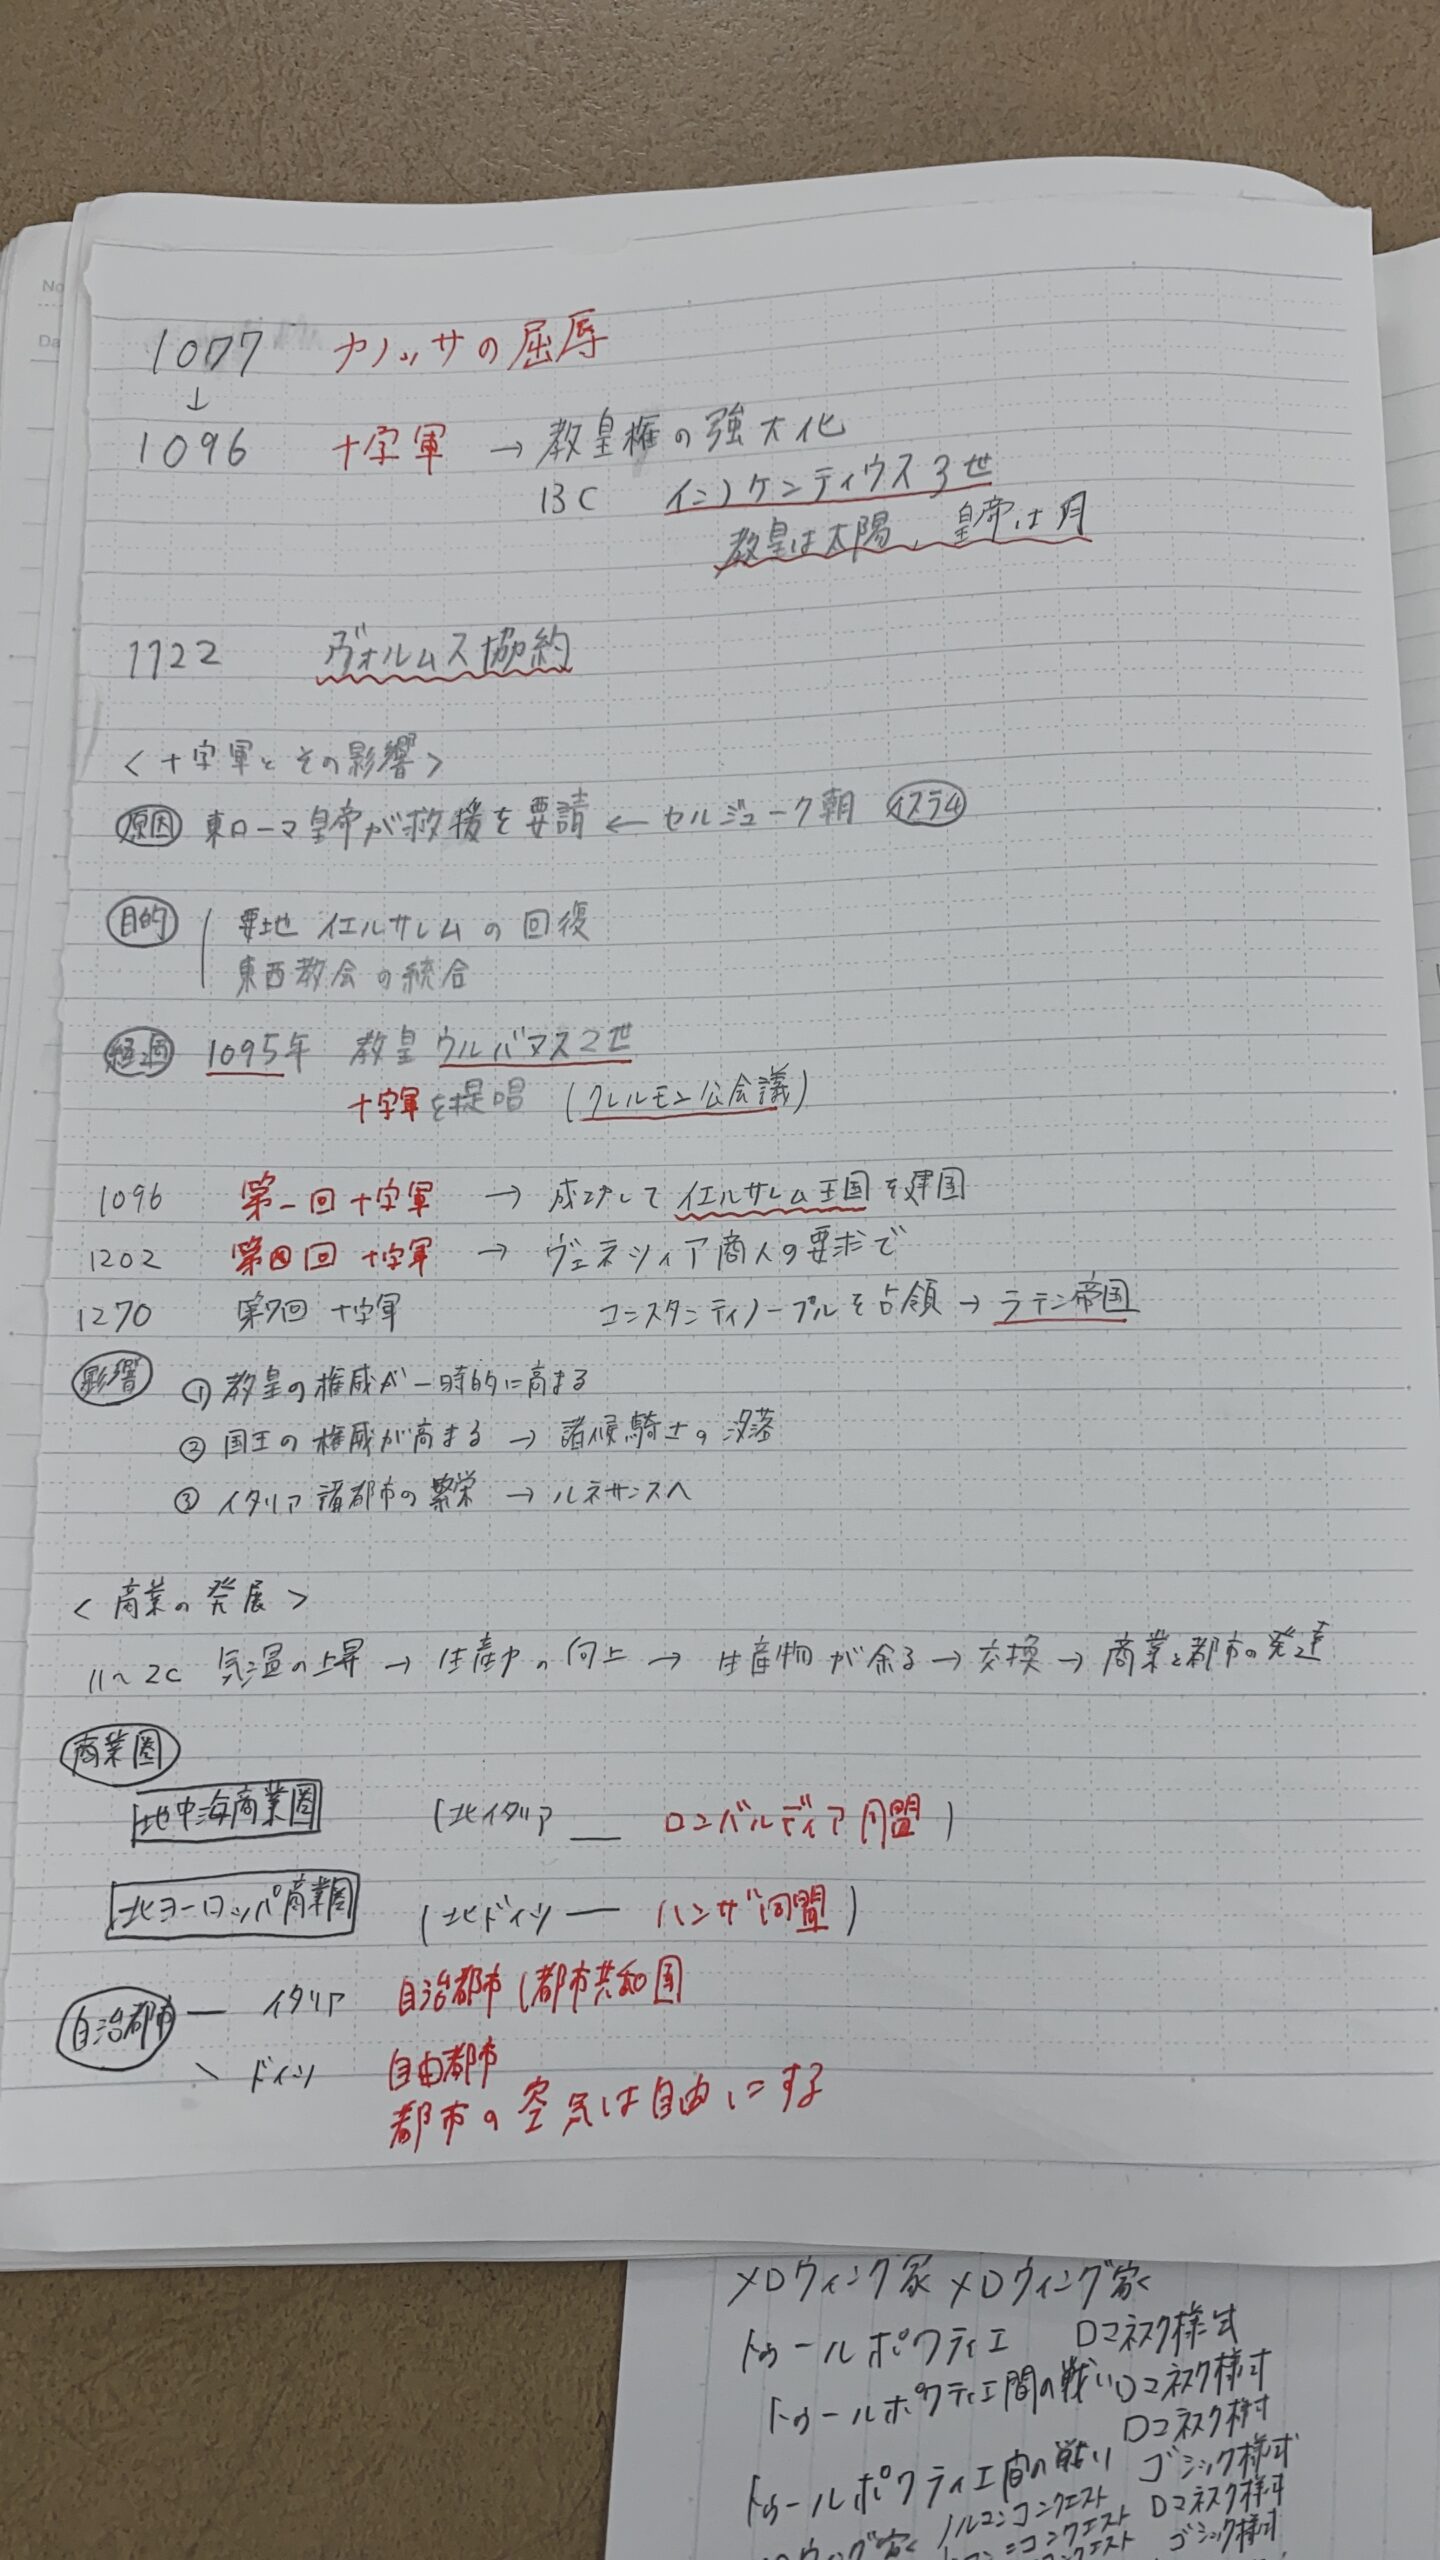 1077 カノッサの屈辱
↓
1096 十字軍 → 教皇権の強大化
13C インノケンティウス3世
教皇は太陽、皇帝は月
1122 ヴォルムス協約
<十字軍とその影響>
原因 東ローマ皇帝が救援を要請 ← セルジューク朝 イスラム
目的 要地 イエルサレムの回復
東西教会の統合
経過 1095年 教皇 ウルバヌス2世
十字軍を提唱 (クレルモン公会議)
1096 第一回十字軍 → 成功して イエルサレム王国を建国
1202 第四回十字軍 → ヴェネツィア商人の要求で
1270 第7回十字軍 コンスタンティノープルを占領 → ラテン帝国
影響 ① 教皇の権威が一時的に高まる
② 国王の権威が高まる → 諸侯騎士の没落
③ イタリア諸都市の繁栄 → ルネサンスへ
<商業の発展>
11~2C 気温の上昇 → 生産力の向上 → 生産物が余る → 交換 → 商業と都市の発達
商業圏
地中海商業圏 (北イタリア — ロンバルディア同盟)
北ヨーロッパ商業圏 (北ドイツ — ハンザ同盟)
自治都市 — イタリア 自治都市(都市共和国
\ ドイツ 自由都市
都市の空気は自由にする
メロヴィング家 メロヴィング家
トゥールポワティエ ロマネスク様式
トゥールポワティエ間の戦い ロマネスク様式
ロマネスク様式
トゥールポワティエ間の戦い ゴシック様式
ノルマンコンクエスト ロマネスク様式
コンクエスト ゴシック様式